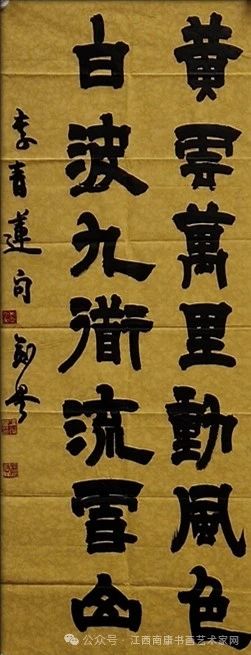 黃雲萬里動風色
白波九衜流雪山
李青蓮句
公众号 · 江西南康书画艺术家网